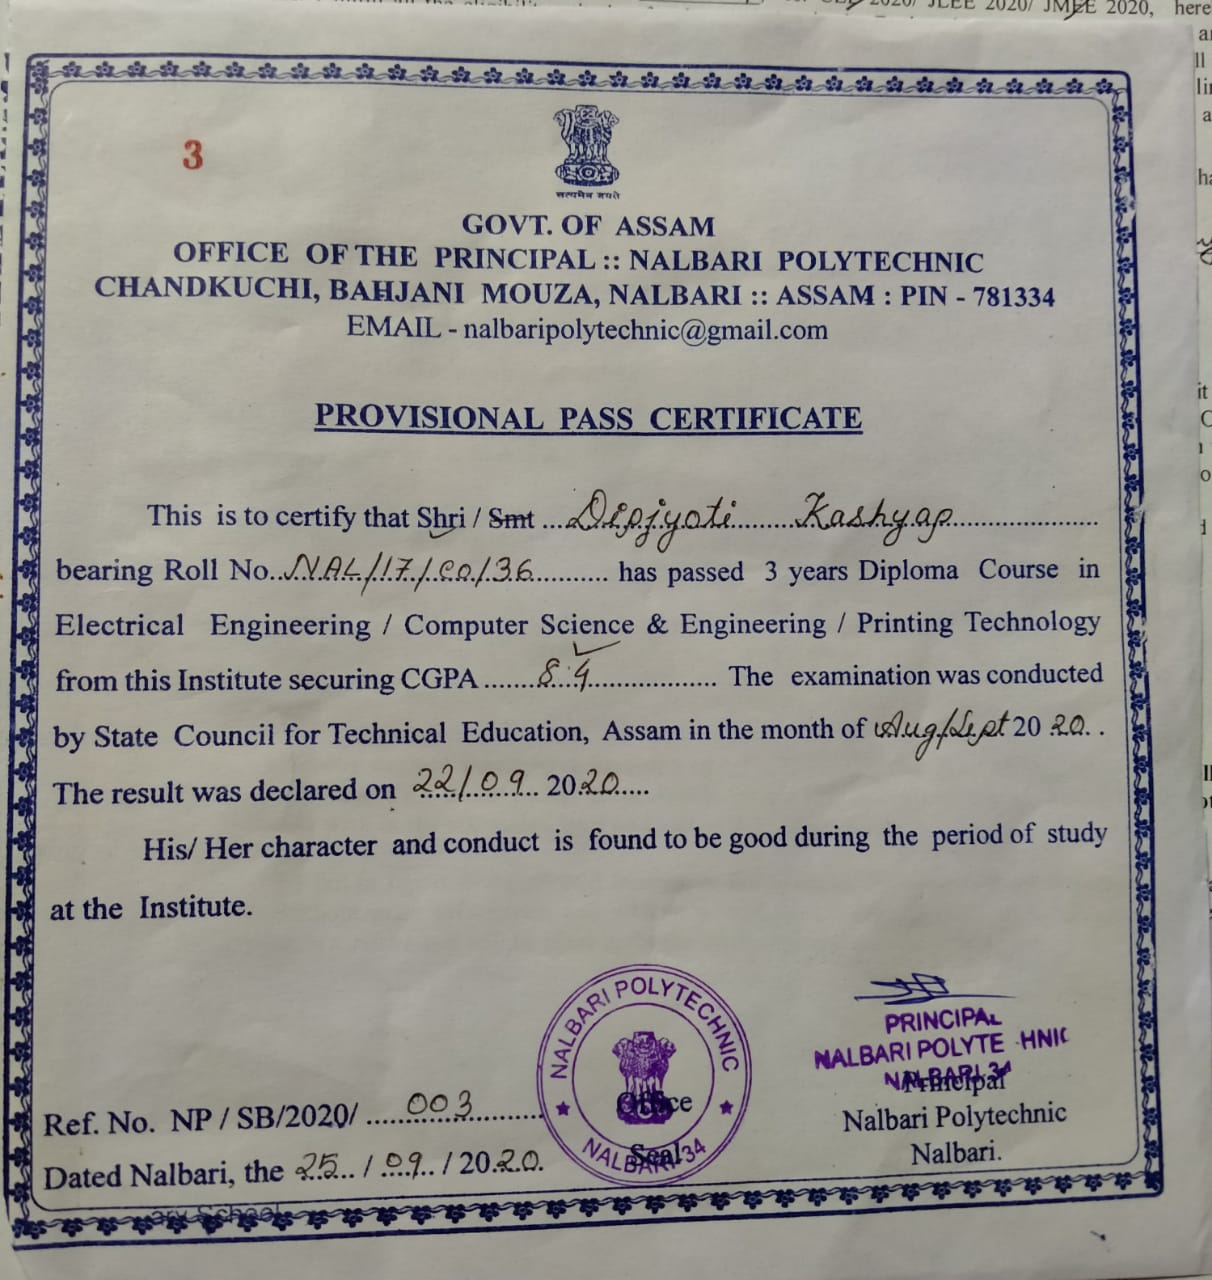 2020/ JLEE 2020/ JMEE 2020, here
3
सत्यमेव जयते
GOVT. OF ASSAM
OFFICE OF THE PRINCIPAL :: NALBARI POLYTECHNIC
CHANDKUCHI, BAHJANI MOUZA, NALBARI :: ASSAM : PIN - 781334
EMAIL - nalbaripolytechnic@gmail.com
PROVISIONAL PASS CERTIFICATE
This is to certify that Shri / Smt ...Dipjyoti.......Kashyap......................
bearing Roll No..NAL/17/CO/36.......... has passed 3 years Diploma Course in
Electrical Engineering / Computer Science & Engineering / Printing Technology
from this Institute securing CGPA .......8.4................. The examination was conducted
by State Council for Technical Education, Assam in the month of Aug/Sept 20 20. .
The result was declared on 22/.09.. 2020....
His/ Her character and conduct is found to be good during the period of study
at the Institute.
NALBARI POLYTECHNIC
NALBARI-34
Office
Seal
PRINCIPAL
NALBARI POLYTE HNIC
NALBARI-34
Principal
Nalbari Polytechnic
Nalbari.
Ref. No. NP / SB/2020/ ......003..........
Dated Nalbari, the 25.. / 09.. / 2020.
ary School